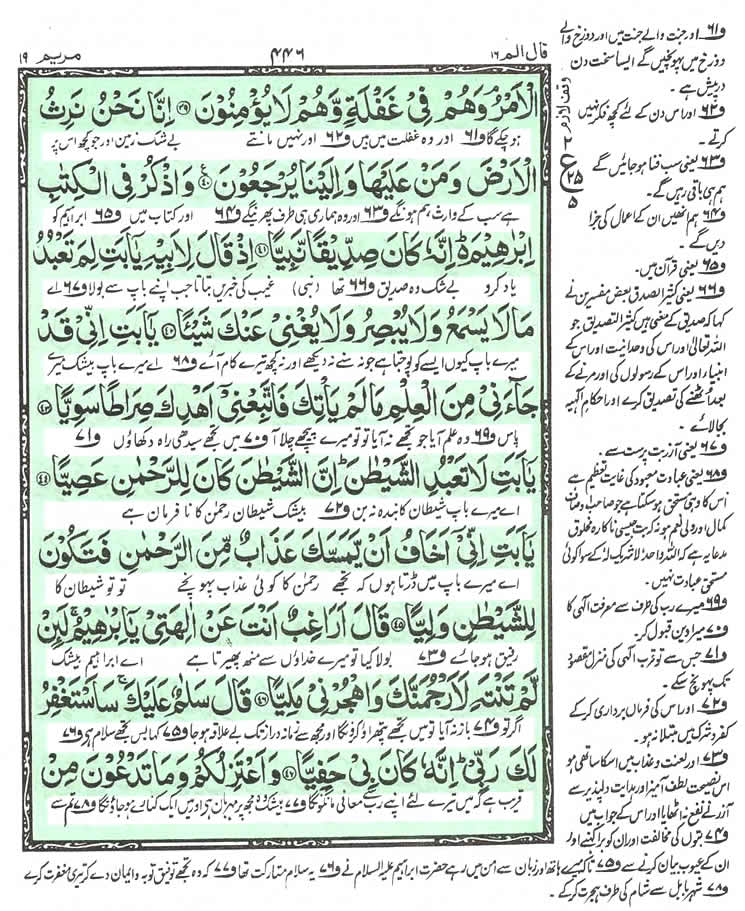 مریم ١٩
٤٤٦
قال الم ١٦
الْاَمْرُ وَهُمْ فِیْ غَفْلَةٍ وَّهُمْ لَا یُؤْمِنُوْنَ ﴿۳۹﴾ اِنَّا نَحْنُ نَرِثُ
ہوچکے گا ف۶۱ اور وہ غفلت میں ہیں ف۶۲ اور نہیں مانتے بے شک زمین اور جو کچھ اس پر
الْاَرْضَ وَمَنْ عَلَیْهَا وَاِلَیْنَا یُرْجَعُوْنَ ﴿۴۰﴾ وَاذْكُرْ فِی الْكِتٰبِ
ہے سب کے وارث ہم ہونگے ف۶۳ اور وہ ہماری ہی طرف پھرینگے ف۶۴ اور کتاب میں ف۶۵ ابراہیم کو
اِبْرٰهِیْمَ ؕ اِنَّهٗ كَانَ صِدِّیْقًا نَّبِیًّا ﴿۴۱﴾ اِذْ قَالَ لِاَبِیْهِ یٰۤاَبَتِ لِمَ تَعْبُدُ
یاد کرو بے شک وہ صدیق ف۶۶ تھا (نبی) غیب کی خبریں بتاتا جب اپنے باپ سے بولا ف۶۷ اے
مَا لَا یَسْمَعُ وَلَا یُبْصِرُ وَلَا یُغْنِیْ عَنْكَ شَیْئًا ﴿۴۲﴾ یٰۤاَبَتِ اِنِّیْ قَدْ
میرے باپ کیوں ایسے کو پوجتا ہے جو نہ سنے نہ دیکھے اور نہ کچھ تیرے کام آئے ف۶۸ اے میرے باپ بیشک میرے
جَآءَنِیْ مِنَ الْعِلْمِ مَا لَمْ یَاْتِكَ فَاتَّبِعْنِیْۤ اَهْدِكَ صِرَاطًا سَوِیًّا ﴿۴۳﴾
پاس ف۶۹ وہ علم آیا جو تجھے نہ آیا تو تو میرے پیچھے چلا آ ف۷۰ میں تجھے سیدھی راہ دکھاؤں ف۷۱
یٰۤاَبَتِ لَا تَعْبُدِ الشَّیْطٰنَ ؕ اِنَّ الشَّیْطٰنَ كَانَ لِلرَّحْمٰنِ عَصِیًّا ﴿۴۴﴾
اے میرے باپ شیطان کا بندہ نہ بن ف۷۲ بیشک شیطان رحمٰن کا نافرمان ہے
یٰۤاَبَتِ اِنِّیْۤ اَخَافُ اَنْ یَّمَسَّكَ عَذَابٌ مِّنَ الرَّحْمٰنِ فَتَكُوْنَ
اے میرے باپ میں ڈرتا ہوں کہ تجھے رحمٰن کا کوئی عذاب پہونچے تو تو شیطان کا
لِلشَّیْطٰنِ وَلِیًّا ﴿۴۵﴾ قَالَ اَرَاغِبٌ اَنْتَ عَنْ اٰلِهَتِیْ یٰۤاِبْرٰهِیْمُ ۚ لَئِنْ
رفیق ہوجائے ف۷۳ بولا کیا تو میرے خداؤں سے منھ پھیرتا ہے اے ابراہیم بیشک
لَّمْ تَنْتَهِ لَاَرْجُمَنَّكَ وَاهْجُرْنِیْ مَلِیًّا ﴿۴۶﴾ قَالَ سَلٰمٌ عَلَیْكَ ۚ سَاَسْتَغْفِرُ
اگر تو ف۷۴ باز نہ آیا تو میں تجھے پتھراؤ کرونگا اور مجھ سے زمانہ دراز تک بے علاقہ ہوجا ف۷۵ کہا بس تجھے سلام ہے ف۷۶
لَكَ رَبِّیْ ؕ اِنَّهٗ كَانَ بِیْ حَفِیًّا ﴿۴۷﴾ وَاَعْتَزِلُكُمْ وَمَا تَدْعُوْنَ مِنْ
قریب ہے کہ میں تیرے لئے اپنے رب سے معافی مانگونگا ف۷۷ بیشک وہ مجھ پر مہربان ہے اور میں ایک کنارے ہوجاؤنگا ف۷۸ تم سے
وقف لازم
ف۶۱ اور جنت والے جنت میں اور دوزخ والے
دوزخ میں پہونچیں گے ایسا سخت دن
درپیش ہے۔
ف۶۲ اور اس دن کے لئے کچھ فکر نہیں
کرتے۔
ف۶۳ یعنی سب فنا ہوجائیں گے
ہم ہی باقی رہیں گے۔
ف۶۴ ہم انھیں ان کے اعمال کی جزا
دیں گے۔
ف۶۵ یعنی قرآن میں۔
ف۶۶ یعنی کثیر الصدق بعض مفسرین نے
کہا کہ صدیق کے معنی ہیں کثیر التصدیق جو
اللہ تعالیٰ اور اس کی وحدانیت اور اس کے
انبیاء اور اس کے رسولوں کی اور مرنے کے
بعد اٹھنے کی تصدیق کرے اور احکام الٰہیہ
بجالائے۔
ف۶۷ یعنی آزر بت پرست سے۔
ف۶۸ یعنی عبادت معبود کی غایت تعظیم ہے
اس کا وہی مستحق ہوسکتا ہے جو صاحب اوصاف
کمال اور ولی نعم ہو نہ کہ بت جیسی ناکارہ مخلوق
مدعا یہ ہے کہ اللہ واحد لاشریک لہ کے سوا کوئی
مستحق عبادت نہیں۔
ف۶۹ میرے رب کی طرف سے معرفت الٰہی کا
ف۷۰ میرا دین قبول کر۔
ف۷۱ جس سے تو قرب الٰہی کی منزل مقصود
تک پہونچ سکے۔
ف۷۲ اور اس کی فرماں برداری کرکے
کفر و شرک میں مبتلا نہ ہو۔
ف۷۳ اور لعنت و عذاب میں اس کا ساتھی ہو
اس نصیحت لطف آمیز اور ہدایت دلپذیر سے
آزر نے نفع نہ اٹھایا اور اس کے جواب میں
ف۷۴ بتوں کی مخالفت اور ان کو برا کہنے اور
ان کے عیوب بیان کرنے سے ف۷۵ تاکہ میرے ہاتھ اور زبان سے امن میں رہے حضرت ابراہیم علیہ السلام نے ف۷۶ یہ سلام متارکت تھا ف۷۷ کہ وہ تجھے توفیق توبہ و ایمان دے کر تیری مغفرت کرے
ف۷۸ شہر بابل سے شام کی طرف ہجرت کرکے۔